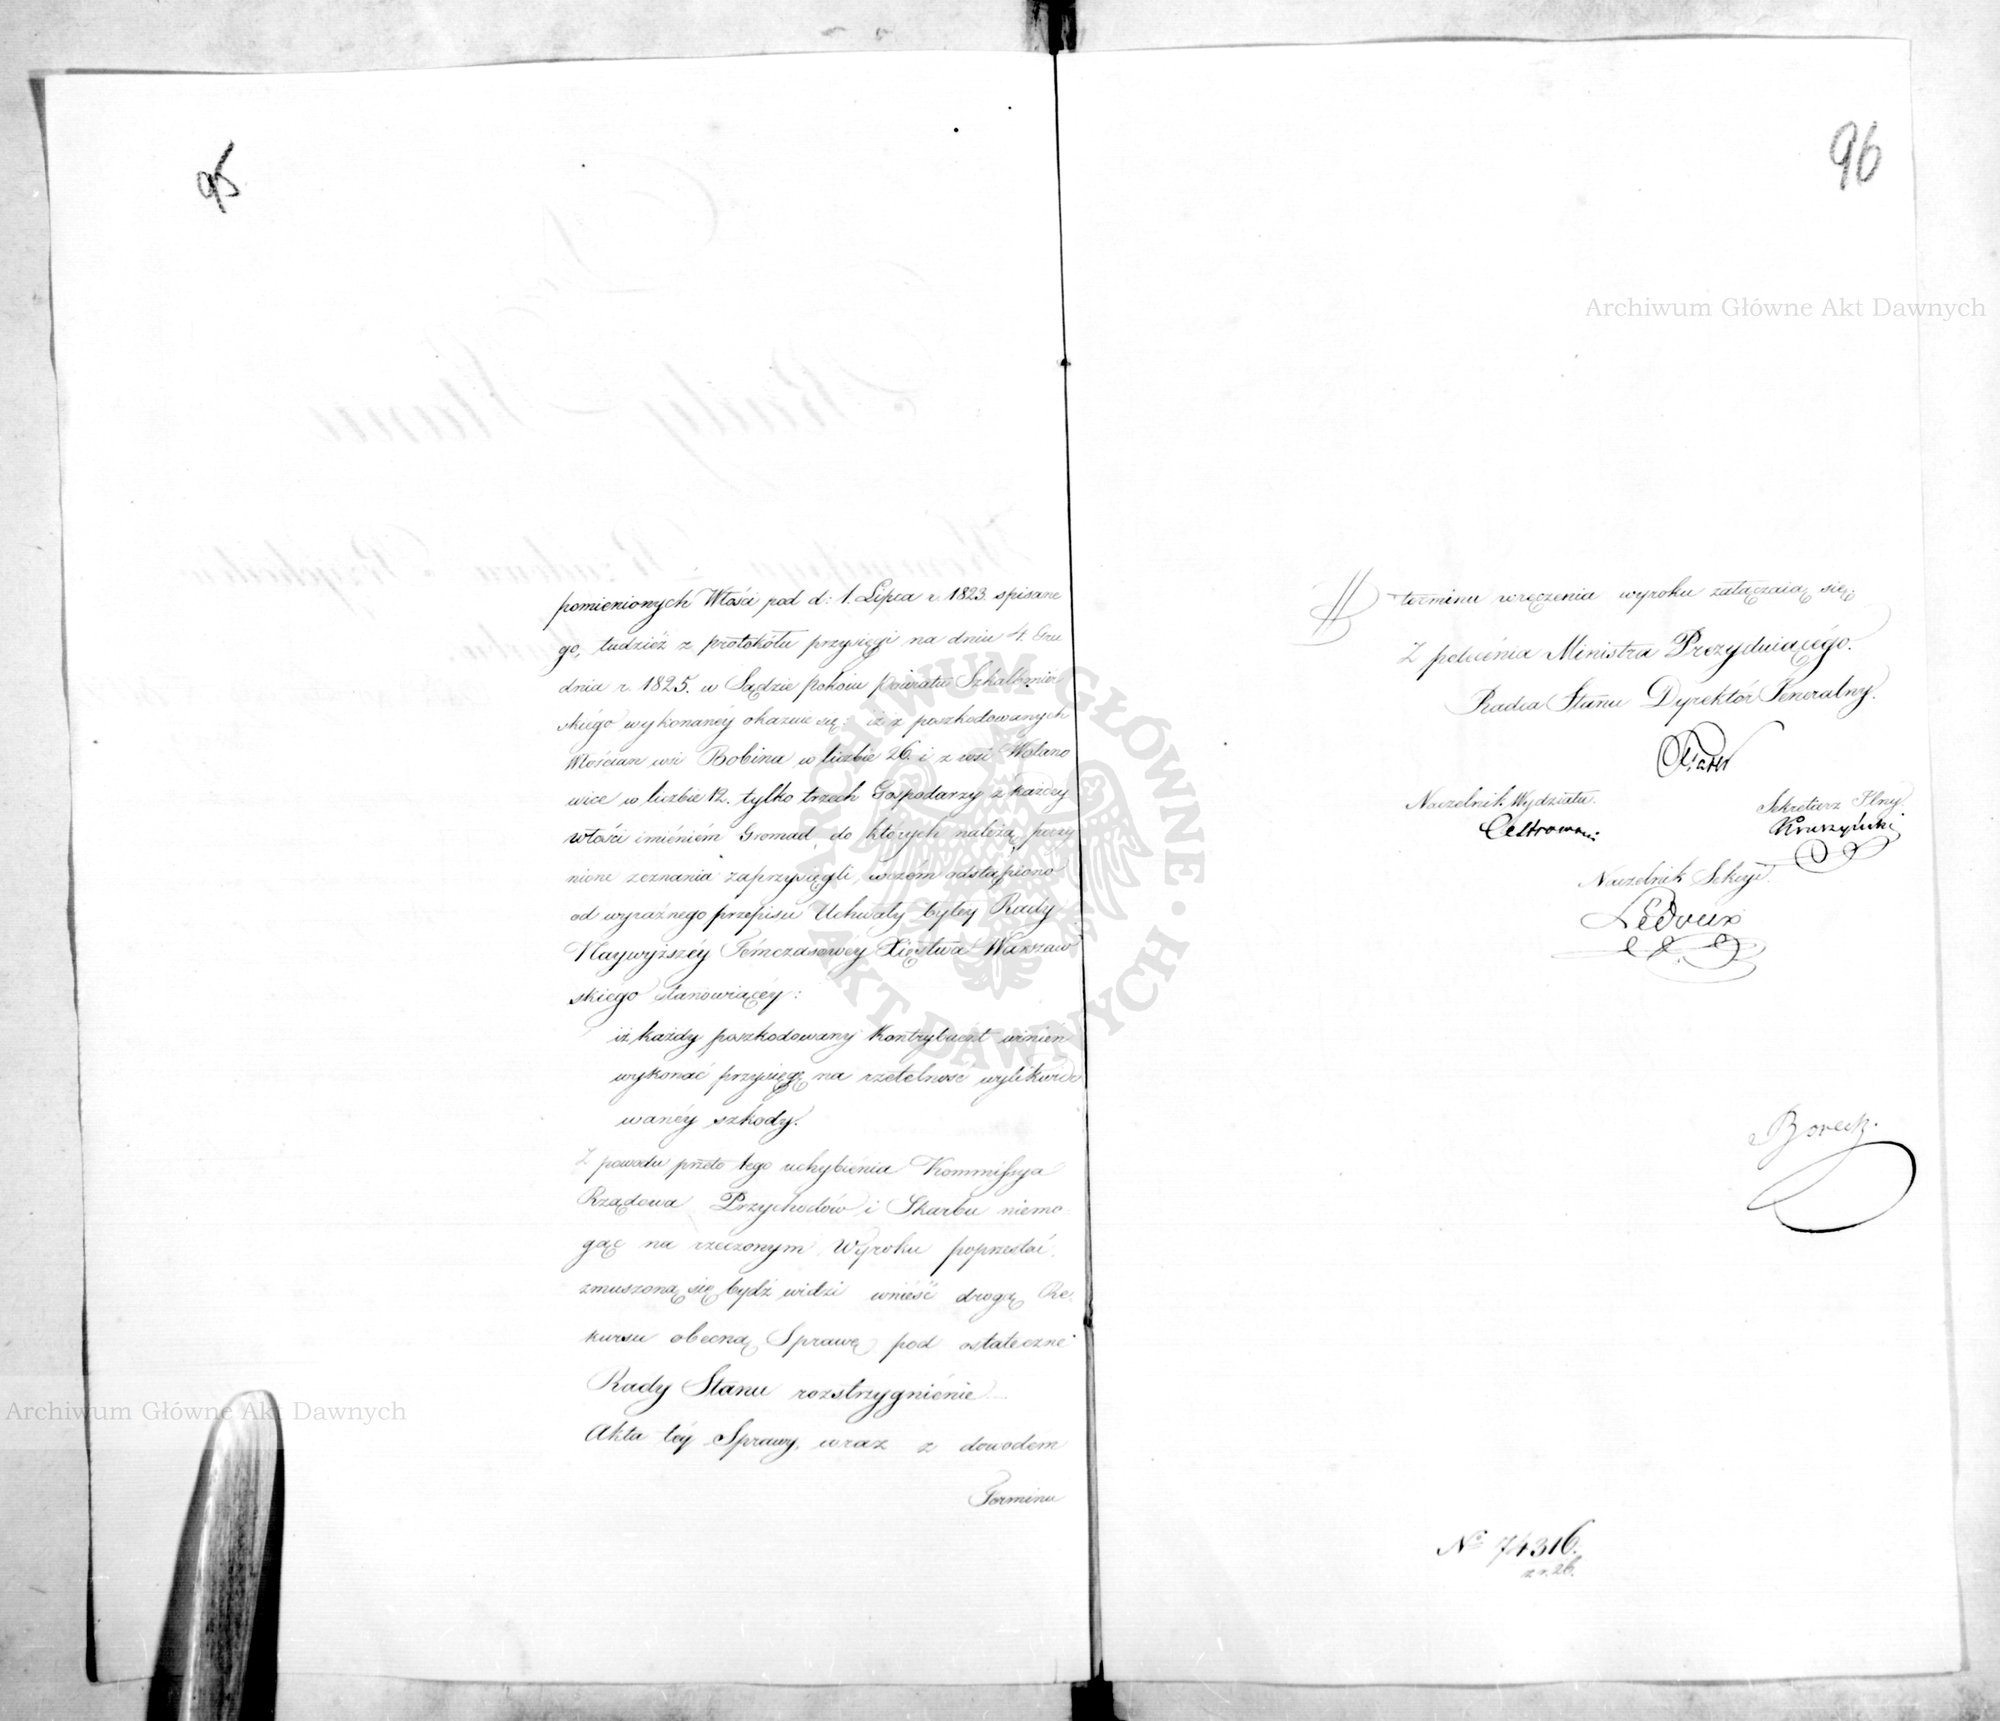 95
pomienionych Włości pod d: 1. Lipca r. 1823. spisane
go, tudzież z protokółu przysięgi na dniu 4. Gru
dnia r. 1825. w Sądzie Pokoiu Powiatu Szkalbmier
skiégo wykonanéy okazuie się: iż z poszkodowanych
Włościan wsi Bobina w liczbie 26. i z wsi Wolano
wice w liczbie 12. tylko trzech Gospodarzy z każdéy
włości imiéniém Gromad, do których należą, poczy
nione zeznania zaprzysięgli, wczém odstąpiono
od wyraźnego przepisu Uchwały byłéy Rady
Naywyższéy Témczasowéy Xięstwa Warszaw
skiégo stanowiącéy:
iż każdy poszkodowany Kontrybuent winien
wykonać przysięgę na rzetelność wylikwido
wanéy szkody.
Z powodu przeto tego uchybiénia Kommissya
Rządowa Przychodów i Skarbu niemo-
gąc na rzeczonym Wyroku poprzestać,
zmuszoną się bydź widzi wnieść drogą Re-
kursu obecną Sprawę pod ostateczne
Rady Stanu rozstrzygniénie.
Akta téy Sprawy, wraz z dowodem
Terminu
96
terminu wręczenia wyroku załączaią się.
Z polecénia Ministra Prezyduiącégo.
Radca Stanu Dyrektór Jeneralny.
Naczelnik Wydziału.
Sekretarz Jlny.
Kruszyński
Naczelnik Sekcyi.
Ledoux
No 74316.
z r. 26.
Archiwum Główne Akt Dawnych
Archiwum Główne Akt Dawnych
ARCHIWUM GŁÓWNE AKT DAWNYCH